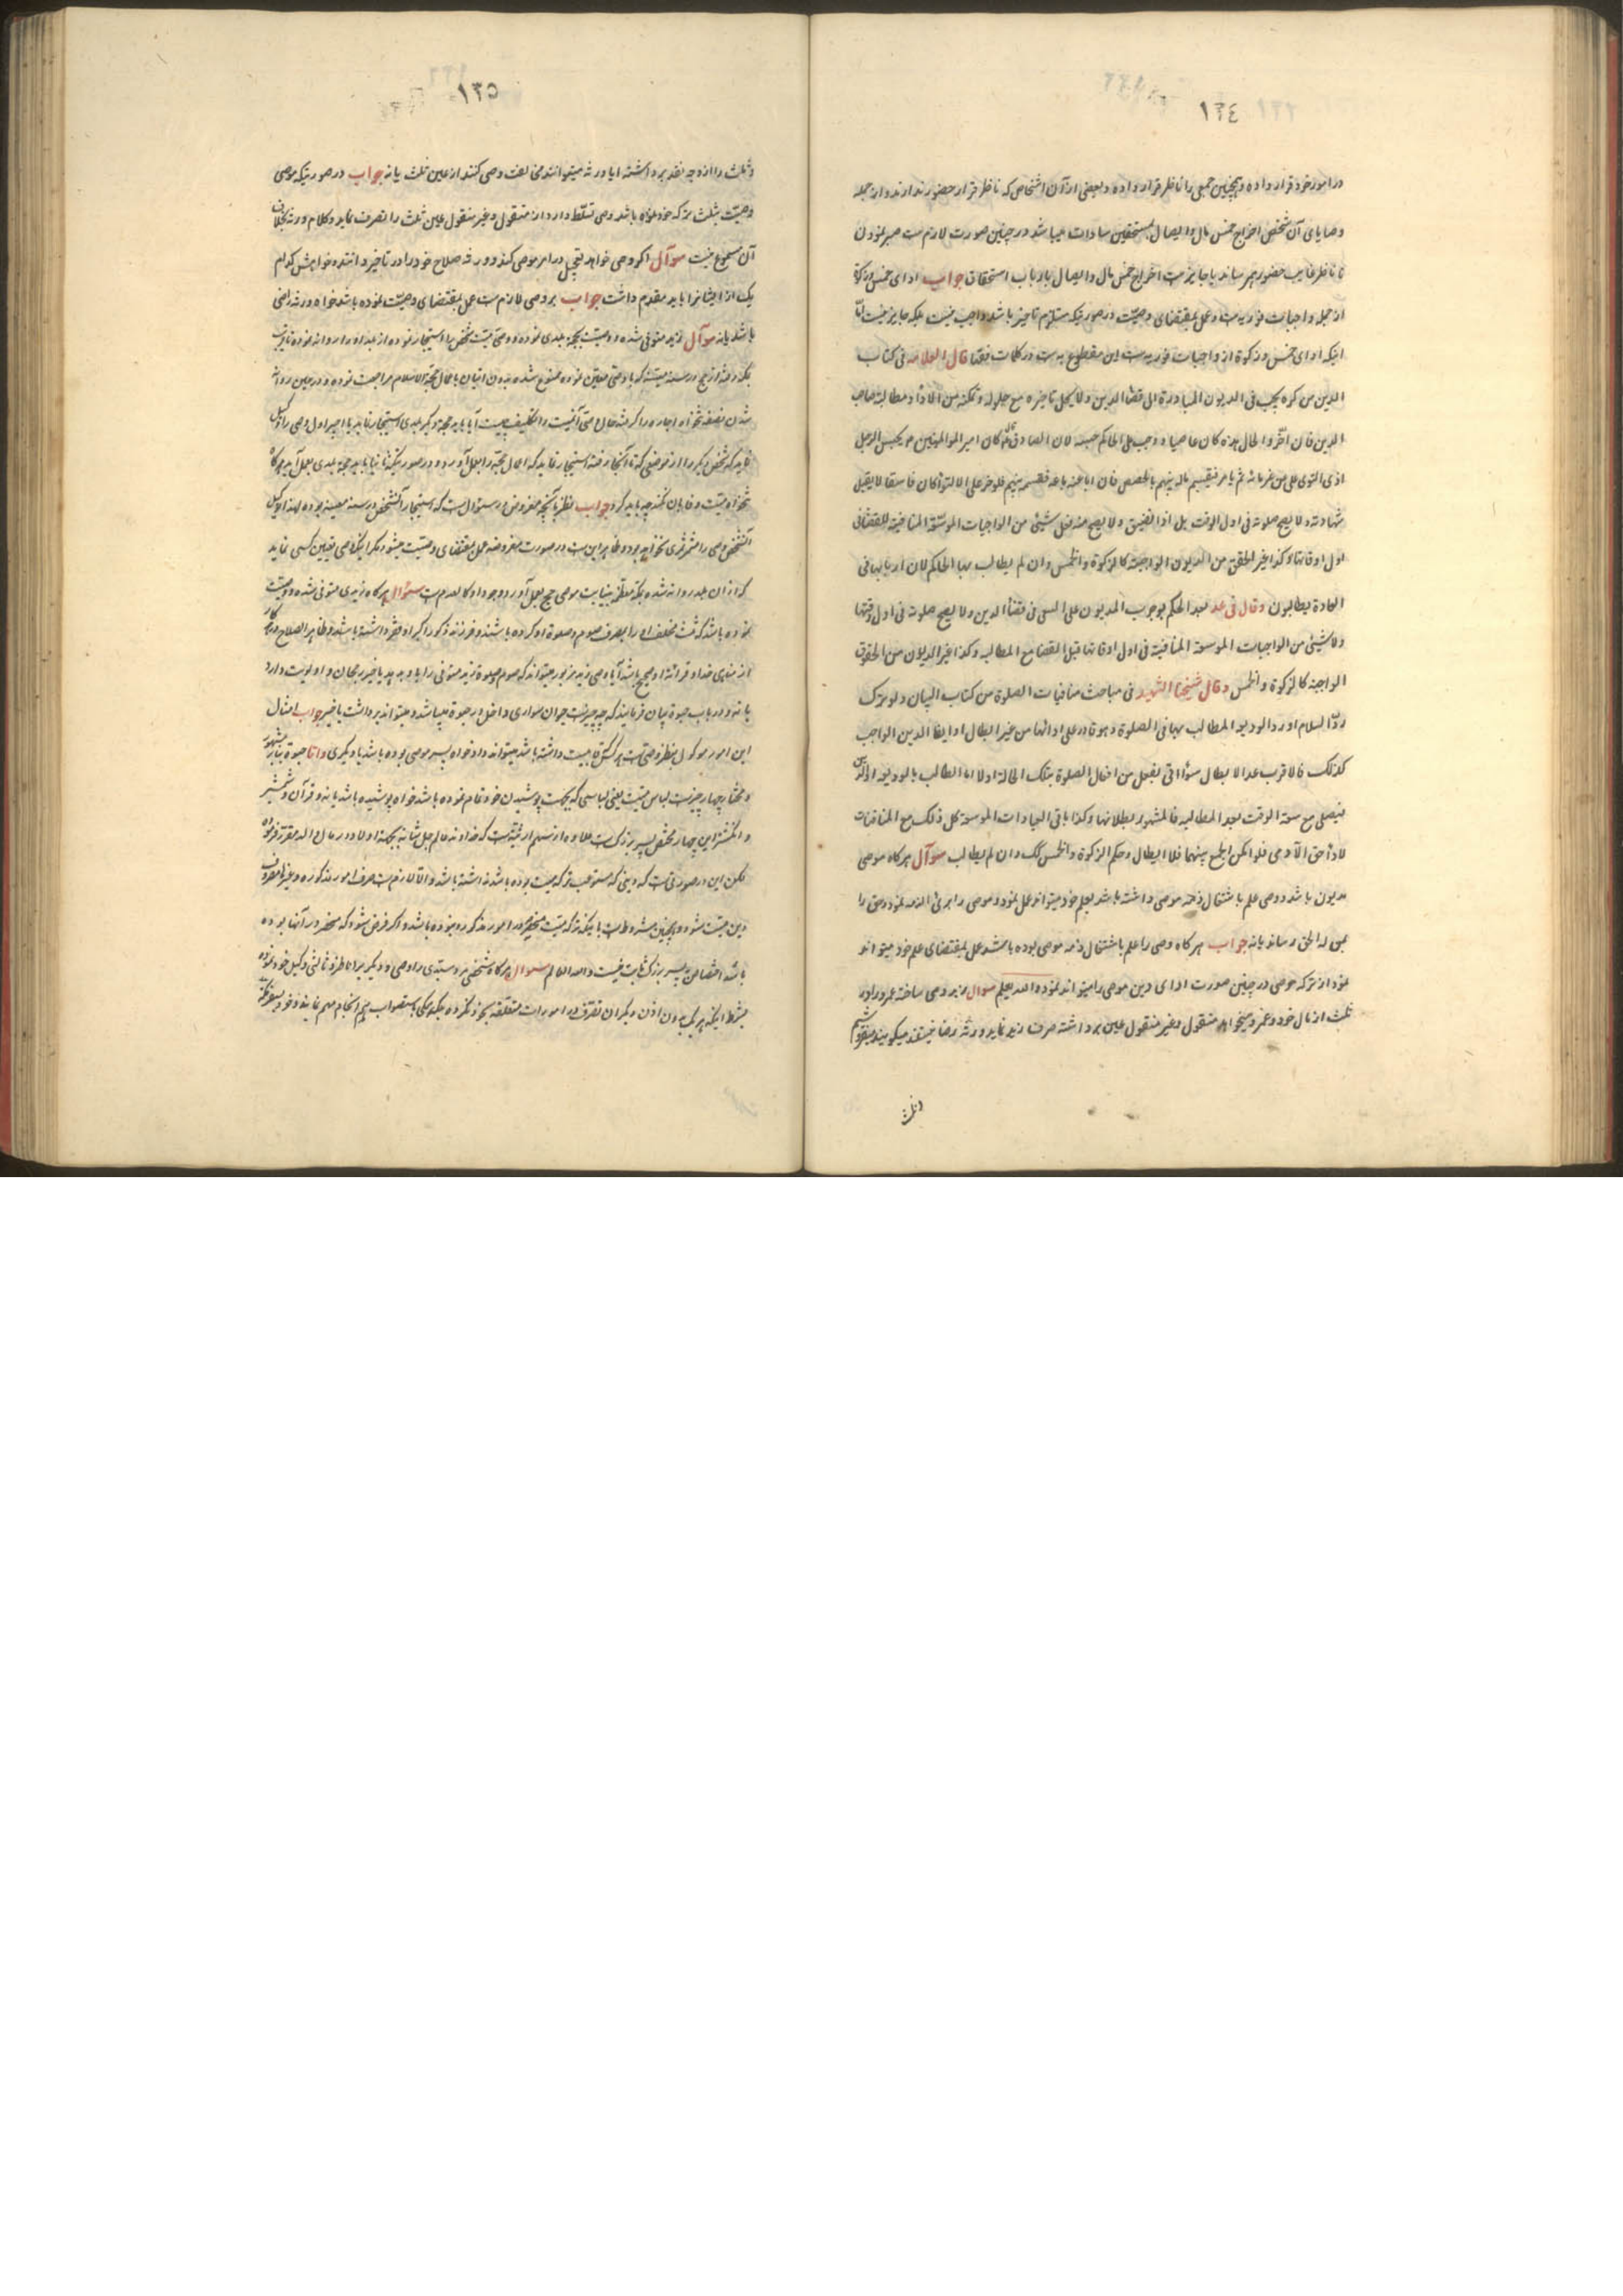 ١٣٤
در امور خود قرار داده و همچنین جمعی را ناظر قرار داده و بعضی از آن اشخاص که ناظر قرار حضور ندارند و از جمله
وصایای آن شخص اخراج خمس مال و ایصال بمستحقین سادات میباشد در چنین صورت لازمست صبر نمودن
تا ناظر غایب حضور بهم رساند یا جایز هست اخراج خمس مال و ایصال بارباب استحقاق جواب ادای خمس و زکوة
از جمله واجبات فوریه است و عمل بمقتضای وصیّت در صورتیکه مستلزم تاخیر باشد واجب نیست بلکه جایز نیست امّا
اینکه ادای خمس و زکوة از واجبات فوریه است این مقطوع به است در کلمات فقها قال العلامه فی کتاب
الدین من کره یجب فی المدیون المبادرة الی قضاء الدین و لا یحل تاخیره مع حلوله و تمکنه من الاداء و مطالبة صاحب
الدین فان اخّر و الحال هذه کان عاصیا و وجب علی الحاکم حبسه لان الصادق قال کان امیر المؤمنین یحبس الرجل
اذی التوی علی من غرمائه ثم یامر فیقسم ماله بینهم بالحصص فان ابی باعه فقسمه بینهم فلو اصر علی الالتواء کان فاسقا لا یقبل
شهادته و لا یصح صلوته فی اول الوقت بل اذا تضیق و لا یصح منه فعل شیئ من الواجبات الموسّعة المنافیة للقضا فی
اول اوقاتها و کذا غیر الحقوق من الدیون الواجبة کالزکوة و الخمس و ان لم یطالب بها الحاکم لان اربابها فی
العادة یطالبون و قال فی عد بعد الحکم بوجوب المدیون علی السعی فی قضاء الدین و لا یصح صلوته فی اول وقتها
و لا شیئ من الواجبات الموسعة المنافیة فی اول اوقاتها قبل القضا مع المطالبه و کذا غیر الدیون من الحقوق
الواجبة کالزکوة و الخمس و قال شیخنا الشهید فی مباحث منافیات الصلوة من کتاب البیان و لو ترک
ردّ السلام او رد الودیعه المطالب بها فی الصلوة و هو قادر علی ادائها من غیر ابطال او ایفا الدین الواجب
کذلک فالاقرب عدم الابطال سواء اتی بفعل من افعال الصلوة بتلک الحالة او لا اما الطالب بالودیعه او الدین
فیصلی مع سعة الوقت بعد المطالبه فالمشهور بطلانها و کذا باقی العبادات الموسعة کل ذلک مع المنافات
لاداء حق الآدمی فلو امکن الجمع بینهما فلا ابطال و حکم الزکوة و الخمس کک و ان لم یطالب سوآل هر کاه موصی
مدیون باشد و وصی علم باشتغال ذمّه موصی داشته باشد بعلم خود میتواند عمل نمود و موصی را بری الذمه نمود و حق را
بمن له الحق رساند یا نه جواب هر کاه وصی را علم باشتغال ذمه موصی بوده باشد عمل بمقتضای علم خود میتواند
نمود از ترکه موصی در چنین صورت ادای دین موصی را میتواند نموده الله یعلم سوال زید وصی ساخته عمرو را در
ثلث از مال خود و عمرو میخواهد منقول و غیر منقول عین برداشته صرف زید نماید و ورثه رضا نیستند میکویند میفروشیم
و ثلث
١٣٥
و ثلث را از وجه نقد برداشته ایا ورثه میتوانند مخالفت وصی کنند از عین ثلث یا نه جواب در صورتیکه موصی
وصیّت بثلث ترکه خود نموده باشد وصی تسلّط دارد از منقول و غیر منقول عین ثلث را تصرف نماید و کلام ورثه بخلاف
آن مسموع نیست سوآل اکر وصی خواهد تعجیل در امر موصی کند و ورثه صلاح خود را در تاخیر دانند خواهش کدام
یک از ایشانرا باید مقدم داشت جواب بر وصی لازمست عمل بمقتضای وصیّت نموده باشد خواه ورثه راضی
باشد یا نه سوآل زید متوفی شده و وصیت بحجه بلدی نموده و وصیّ میّت شخص را استیجار نموده از بلد او را روانه نموده نایب
بمکه رفته از حج در سنه معینه که با وصی معیّن نموده ممنوع شده بدون اتیان باعمال حجّة الاسلام مراجعت نموده و در حین روانه
شدن نصف تنخواه اجاره را کرفته حال وصیّ آنمیّت را تکلیف چیست آیا باید حجة دیکر بلدی استیجار نماید یا اجیر اول وصی را وکیل
نماید که شخص دیکر را از موضعی که تا آنجا رفته استیجار نماید که اعمال حجّة را بعمل آورد و در صورتیکه ثانیا باید حجة بلدی بعمل آید هر کاه
تنخواه میّت وفا بآن نکند چه باید کرد جواب نظر بآنچه مفروض در سئوال است که استیجار آنشخص در سنه معینه بوده لهذا توکیل
آنشخص وصی را مثمر ثمری نخواهد بود و ظاهر این است در صورت مفروضه عمل بمقتضای وصیّت میشود مکر اینکه وصی تعیین کسی نماید
که از آن بلد روانه شده بمکه معظّمه بنیابت موصی حج بعمل آورد وجود او کالعدم است سئوال هر کاه زیدی متوفی شده و وصیّت
نموده باشد که ثلث مخلف او را بصرف صوم و صلوة او کرده باشند و فرزند ذکور اکبر او فقر داشته باشد و ظاهر الصلاح و پرهیزکار
از مناهی خدا و قرائة او صحیح باشد آیا وصی زید مزبور میتواند که صوم و صلوة زید متوفی را باو بدهد یا خیر رجحان و اولویت دارد
یا نه و در باب حبوة بیان فرمایند که چه چیز است حیوان سواری داخل در حبوة میباشد و میتواند برداشت یا خیر جواب امثال
این امور موکول بنظر وصی است هر کس قابلیت داشته باشد میتواند داد خواه پسر موصی بوده باشد یا دیکری و اما حبوة بنا بر مشهور
و مختار چهار چیز است لباس میّت یعنی لباسی که بجهت پوشیدن خود تمام نموده باشد خواه پوشیده باشد یا نه و قرآن و شمشیر
و انکشتر این چهار مختص پسر بزرک است علاوه از سهم ارثیّت است که خداوند عالم جل شانه بجهة اولاد در مال والد مقرر فرموده
لکن این در صورتی است که دینی که مستوعب ترکه میّت بوده باشد نداشته باشد و الا لازم است صرف امور مذکوره و غیرها بمصرف
دین میّت شود و همچنین مشروط است باینکه ترکه میّت منحصر در امور مذکوره نبوده باشد و اکر فرض شود که منحصر در آنها بوده
باشد اختصاص به پسر بزرک ثابت نیست و الله العالم سوال هر کاه شخصی مرد سیّدی را وصی و دیکریرا ناظر و ثالثی وکیل خود نموده
بشرط اینکه هر یک بدون اذن دیکران تصرّف در امورات متعلّقه بخود نکرده بلکه همکی باستصواب هم انجام مهم نمایند